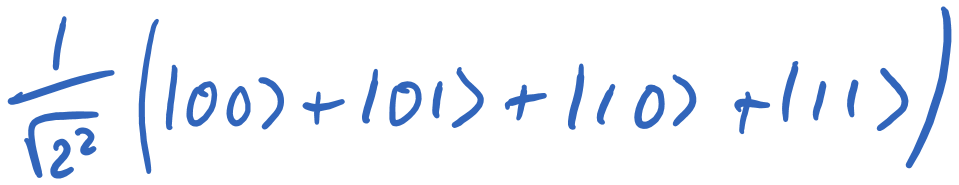 1/√(2²) (|00⟩ + |01⟩ + |10⟩ + |11⟩)